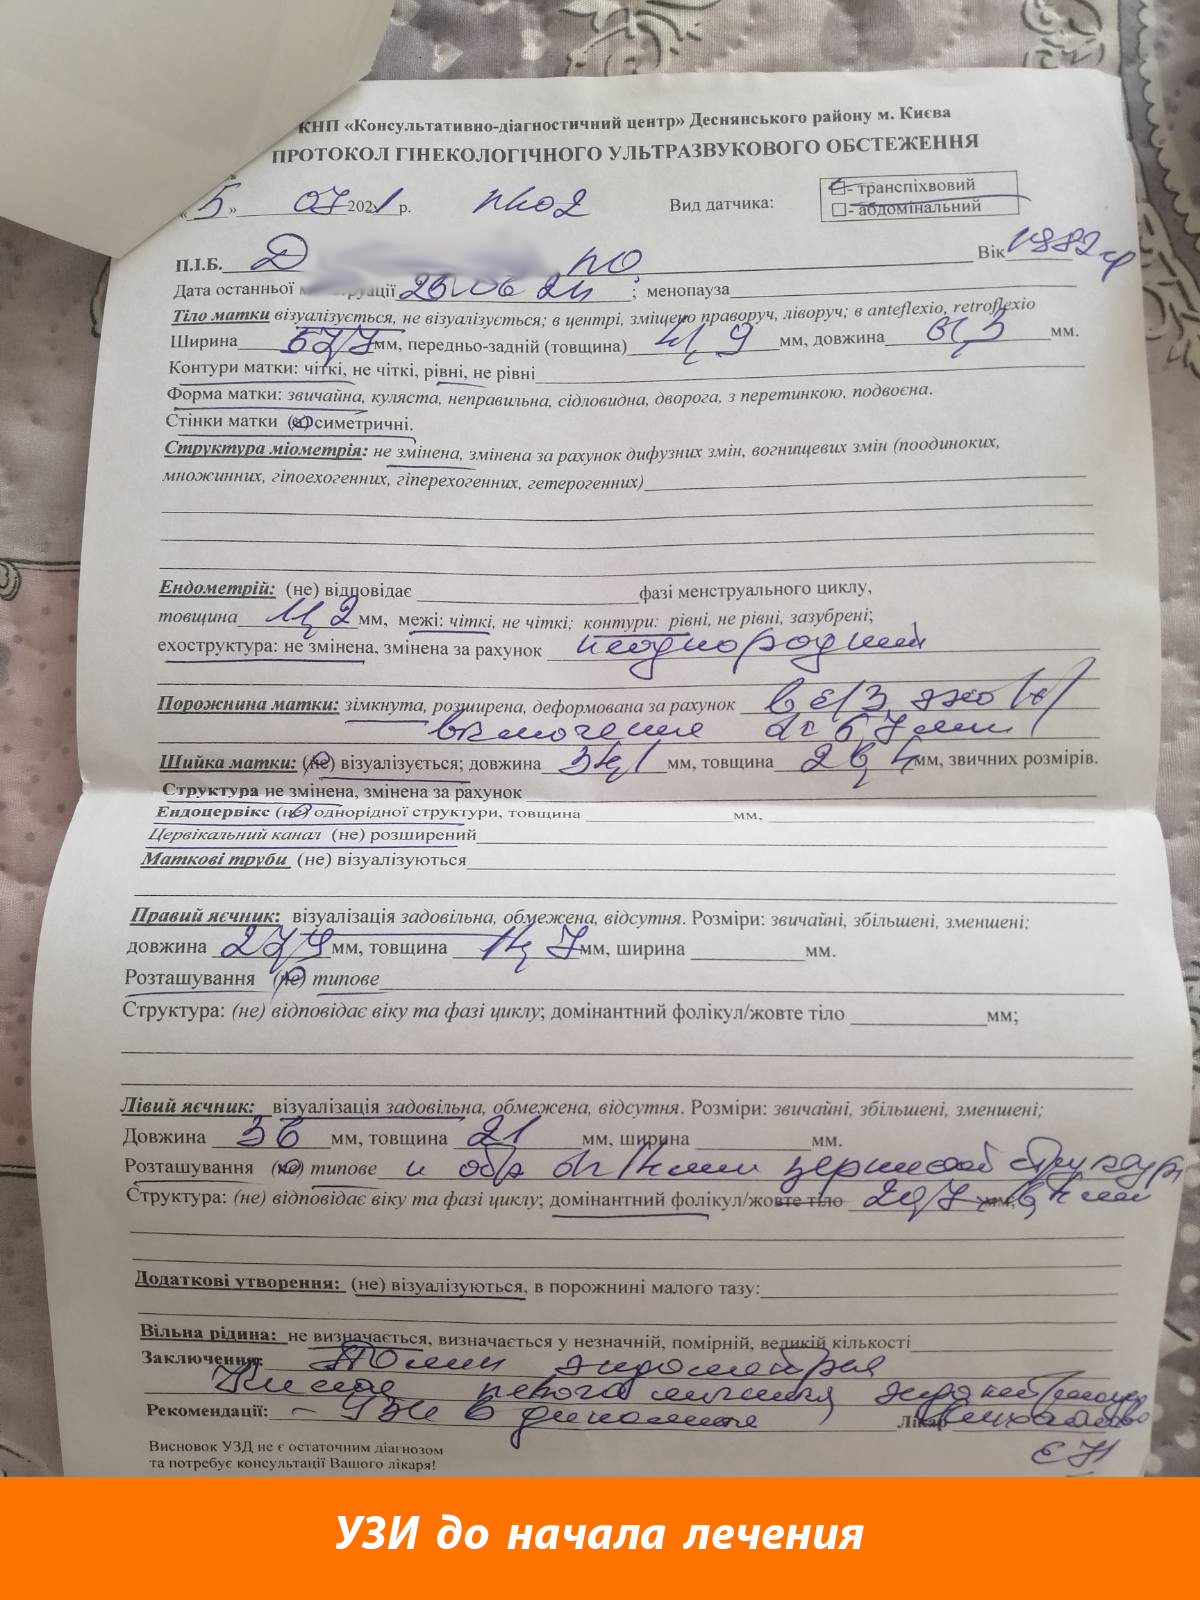 КНП «Консультативно-діагностичний центр» Деснянського району м. Києва
ПРОТОКОЛ ГІНЕКОЛОГІЧНОГО УЛЬТРАЗВУКОВОГО ОБСТЕЖЕННЯ
« 5 » 07 2021 р. Вид датчика: - транспіхвовий
- абдомінальний
П.І.Б. Д Вік 1982
Дата останньої ; менопауза
Тіло матки візуалізується, не візуалізується; в центрі, зміщено праворуч, ліворуч; в anteflexio, retroflexio
Ширина 57,7 мм, передньо-задній (товщина) 41,9 мм, довжина мм.
Контури матки: чіткі, не чіткі, рівні, не рівні
Форма матки: звичайна, куляста, неправильна, сідловидна, дворога, з перетинкою, подвоєна.
Стінки матки (а)симетричні.
Структура міометрія: не змінена, змінена за рахунок дифузних змін, вогнищевих змін (поодиноких,
множинних, гіпоехогенних, гіперехогенних, гетерогенних)
Ендометрій: (не) відповідає фазі менструального циклу,
товщина 11,2 мм, межі: чіткі, не чіткі; контури: рівні, не рівні, зазубрені;
ехоструктура: не змінена, змінена за рахунок неоднородний
Порожнина матки: зімкнута, розширена, деформована за рахунок в с/3
включения 6,7 мм
Шийка матки: (не) візуалізується; довжина 34,1 мм, товщина мм, звичних розмірів.
Структура не змінена, змінена за рахунок
Ендоцервікс (не) однорідної структури, товщина мм,
Цервікальний канал (не) розширений
Маткові труби (не) візуалізуються
Правий яєчник: візуалізація задовільна, обмежена, відсутня. Розміри: звичайні, збільшені, зменшені;
довжина 27,9 мм, товщина мм, ширина мм.
Розташування (не) типове
Структура: (не) відповідає віку та фазі циклу; домінантний фолікул/жовте тіло мм;
Лівий яєчник: візуалізація задовільна, обмежена, відсутня. Розміри: звичайні, збільшені, зменшені;
Довжина 36 мм, товщина 21 мм, ширина мм.
Розташування (не) типове
Структура: (не) відповідає віку та фазі циклу; домінантний фолікул/жовте тіло мм;
Додаткові утворення: (не) візуалізуються, в порожнині малого тазу:
Вільна рідина: не визначається, визначається у незначній, помірній, великій кількості
Заключення: Полип эндометрия
Киста левого яичника
Рекомендації: - УЗИ в динамике Лікар
Висновок УЗД не є остаточним діагнозом
та потребує консультації Вашого лікаря!
УЗИ до начала лечения